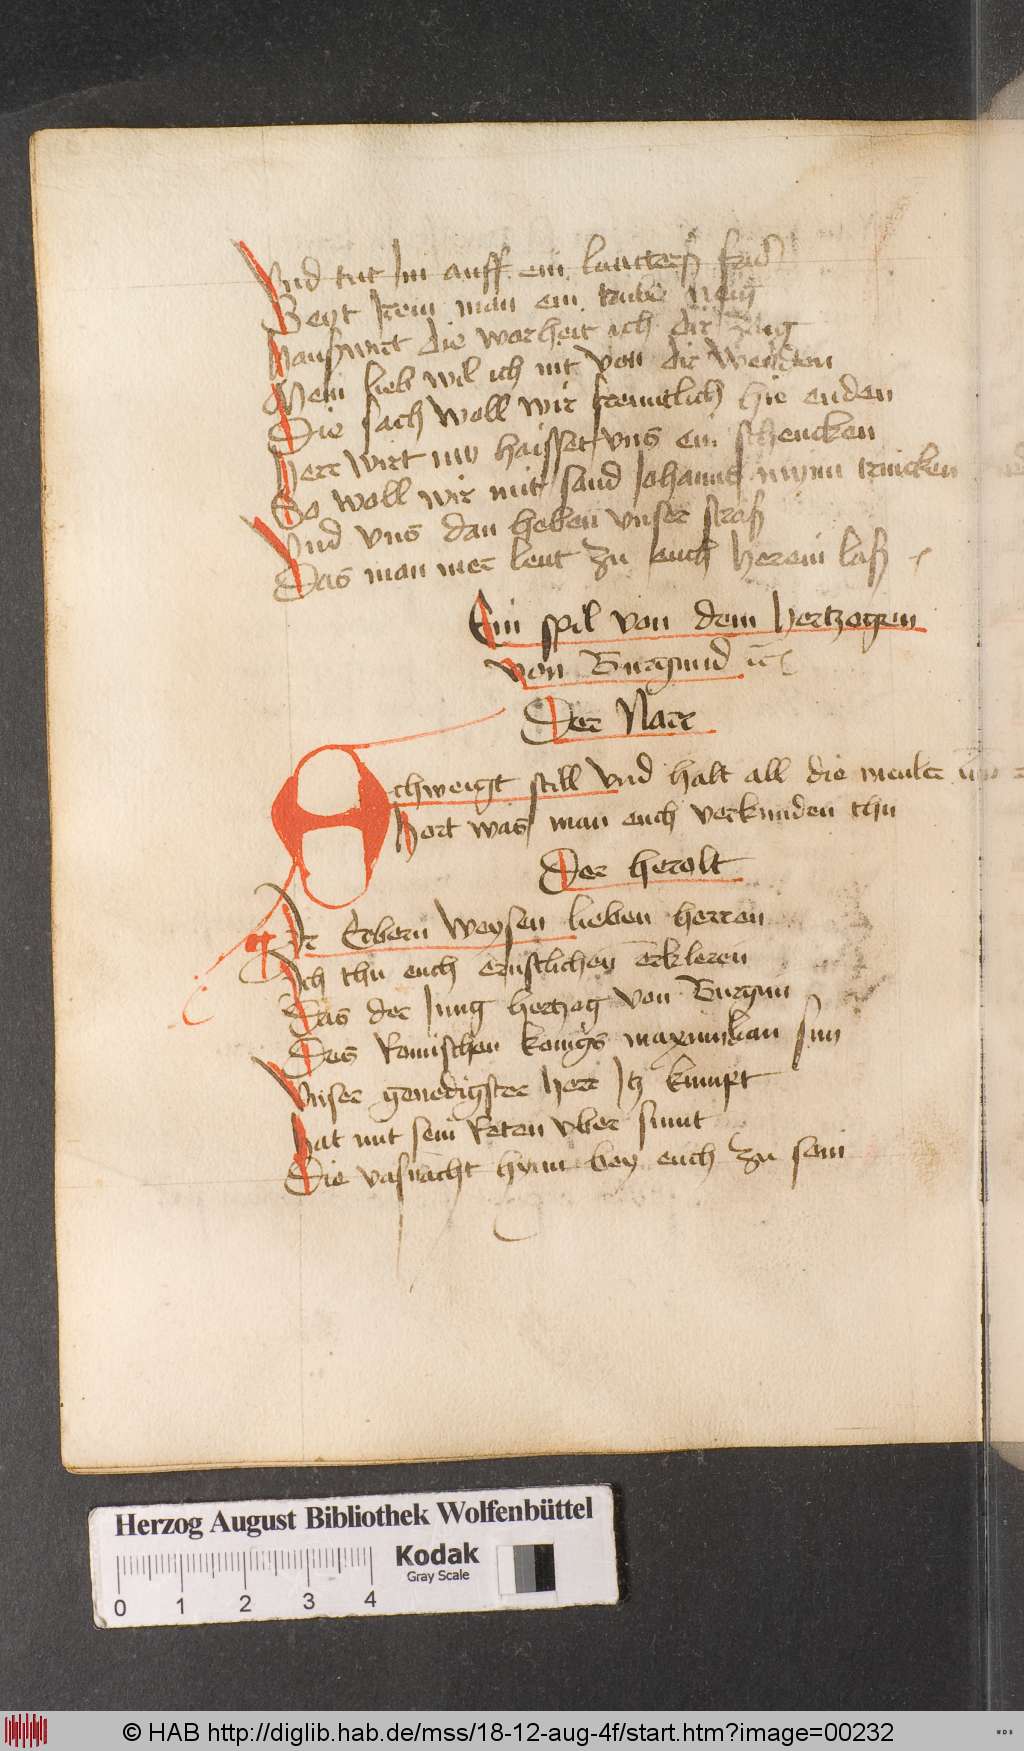 Vnd tut Im auff ein lauters
Seyt Irem man ein truben
Haußwirt die warheit ich dir
Mein lieb wil ich nit von dir wenden
Die sach woll wir freuntlich hie enden
Herr wirt nu haisset vns ein schencken
So woll wir mit sand Johanns mynn trincken
Vnd vns dan heben vnser straß
Das man mer leut zu euch herein laß
Ein spil von dem hertzogen
von Burgund ꝛc
Der Narr
Schweigt still vnd halt all die meuler
Hort was man euch verkunden thu
Der herolt
Ir Erbern weysen lieben herren
Ich thu euch ernstlichen erkleren
Das der Jung hertzog von Burgun
Des Romischen konigs maxymilian sun
Vnser genedigster herr Itz kumpt
Hat mit sein Reten vber sumt
Die vasnacht hynn bey euch zu sein
Herzog August Bibliothek Wolfenbüttel
Kodak
Gray Scale
0 1 2 3 4
© HAB http://diglib.hab.de/mss/18-12-aug-4f/start.htm?image=00232